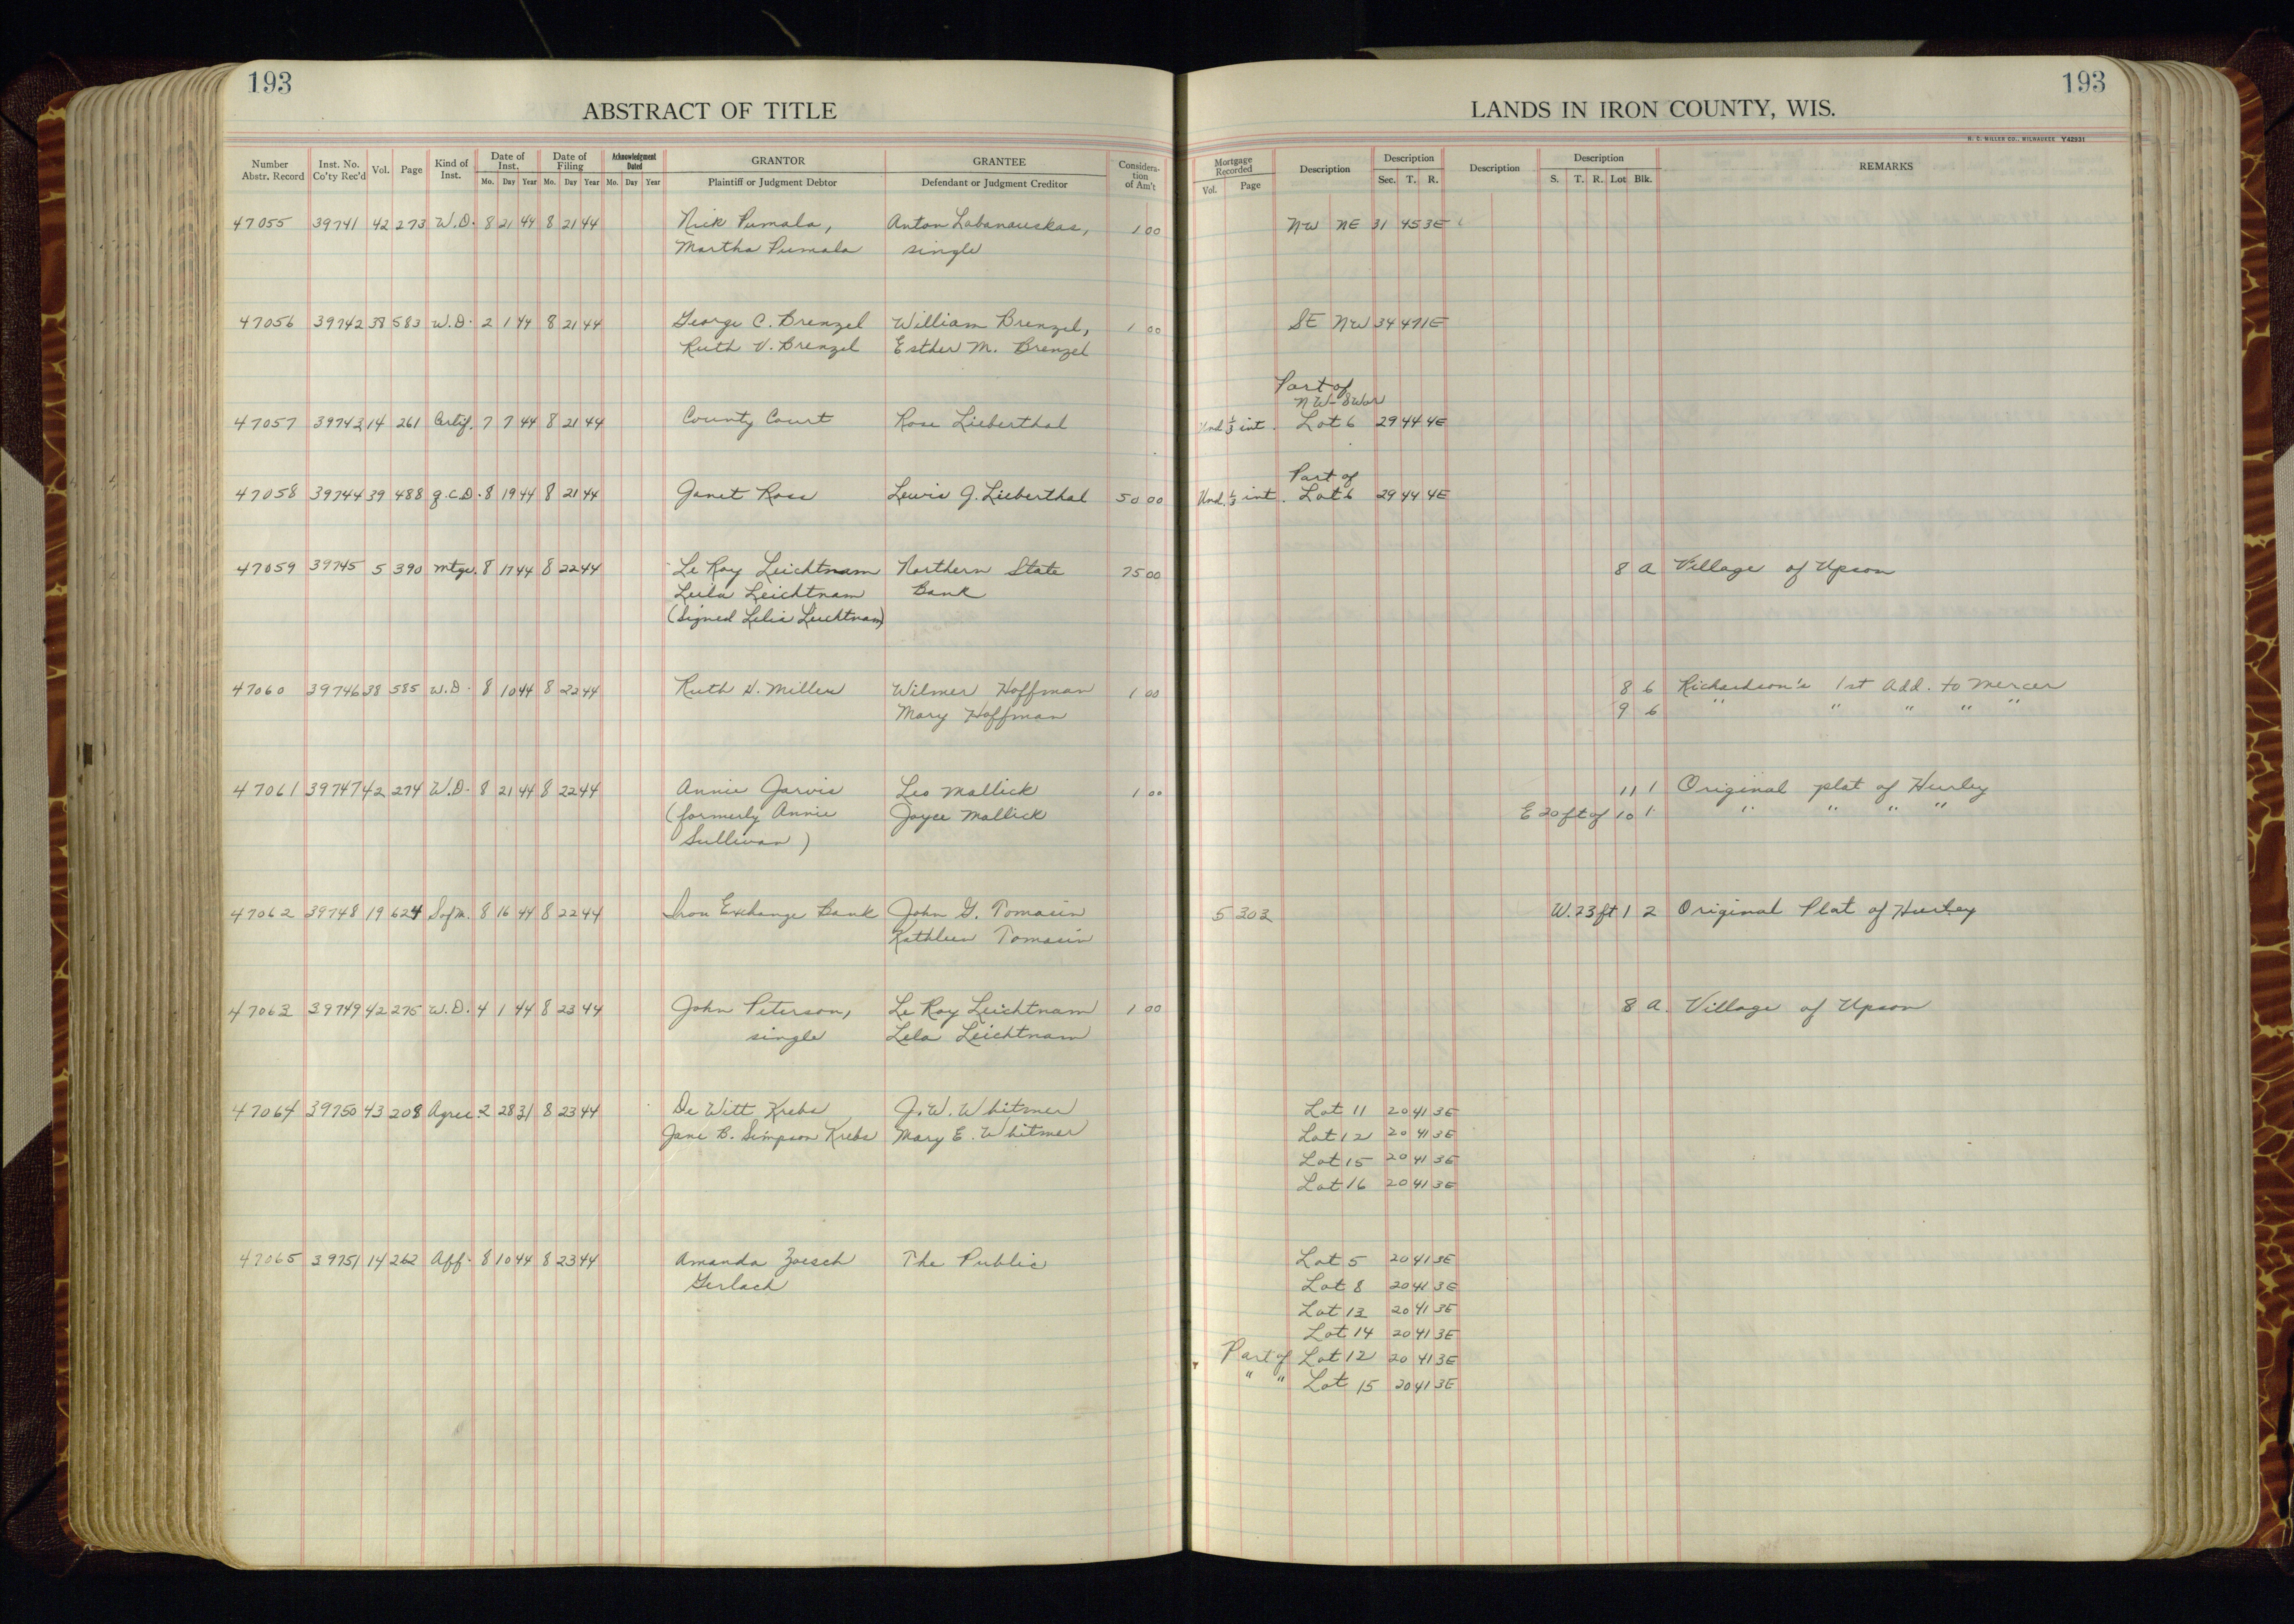 193
ABSTRACT OF TITLE
Number Abstr. Record Inst. No. Co'ty Rec'd Vol. Page Kind of Inst. Date of Inst. Mo. Day Year Date of Filing Mo. Day Year Acknowledgment Dated Mo. Day Year GRANTOR Plaintiff or Judgment Debtor GRANTEE Defendant or Judgment Creditor Considera-tion of Am't
47055 39741 42 273 W.D. 8 21 44 8 21 44 Nick Pumala, Anton Labanauskas, 1 00
Martha Pumala single
47056 39742 38 583 W.D. 2 1 44 8 21 44 George C. Brenzel William Brenzel, 1 00
Ruth V. Brenzel Esther M. Brenzel
47057 39743 14 261 Certif. 7 7 44 8 21 44 County Court Rose Lieberthal
47058 39744 39 488 q.C.D. 8 19 44 8 21 44 Janet Ross Lewis J. Lieberthal 50 00
47059 39745 5 390 Mtge. 8 17 44 8 22 44 Le Roy Leichtnam Northern State 75 00
Leila Leichtnam Bank
(Signed Lelia Leichtnam)
47060 39746 38 585 W.D. 8 10 44 8 22 44 Ruth H. Miller Wilmer Hoffman 1 00
Mary Hoffman
47061 39747 42 274 W.D. 8 21 44 8 22 44 Annie Jarvis Leo Mallick 1 00
(formerly Annie Joyce Mallick
Sullivan)
47062 39748 19 624 S of M. 8 16 44 8 22 44 Iron Exchange Bank John G. Tomasin
Kathleen Tomasin
47063 39749 42 275 W.D. 4 1 44 8 23 44 John Peterson, Le Roy Leichtnam 1 00
single Lela Leichtnam
47064 39750 43 208 Agree. 2 28 31 8 23 44 De Witt Krebs J. W. Whitmer
Jane B. Simpson Krebs Mary E. Whitmer
47065 39751 14 262 Aff. 8 10 44 8 23 44 Amanda Zoesch The Public
Gerlach
193
LANDS IN IRON COUNTY, WIS.
H. C. MILLER CO., MILWAUKEE Y42931
Mortgage Recorded Vol. Page Description Description Sec. T. R. Description Description S. T. R. Lot Blk. REMARKS
NW NE 31 45 3E
SE NW 34 47 1E
Part of
NW-SW or
Und. 1/3 int. Lot 6 29 44 4E
Part of
Und. 1/3 int. Lot 6 29 44 4E
8 A Village of Upson
8 6 Richardson's 1st Add. to Mercer
9 6 " " " " "
11 1 Original plat of Hurley
E 20 ft of 10 1 " " " "
5 302 W. 23 ft 1 2 Original Plat of Hurley
8 A. Village of Upson
Lot 11 20 41 3E
Lot 12 20 41 3E
Lot 15 20 41 3E
Lot 16 20 41 3E
Lot 5 20 41 3E
Lot 8 20 41 3E
Lot 13 20 41 3E
Lot 14 20 41 3E
Part of Lot 12 20 41 3E
" " Lot 15 20 41 3E